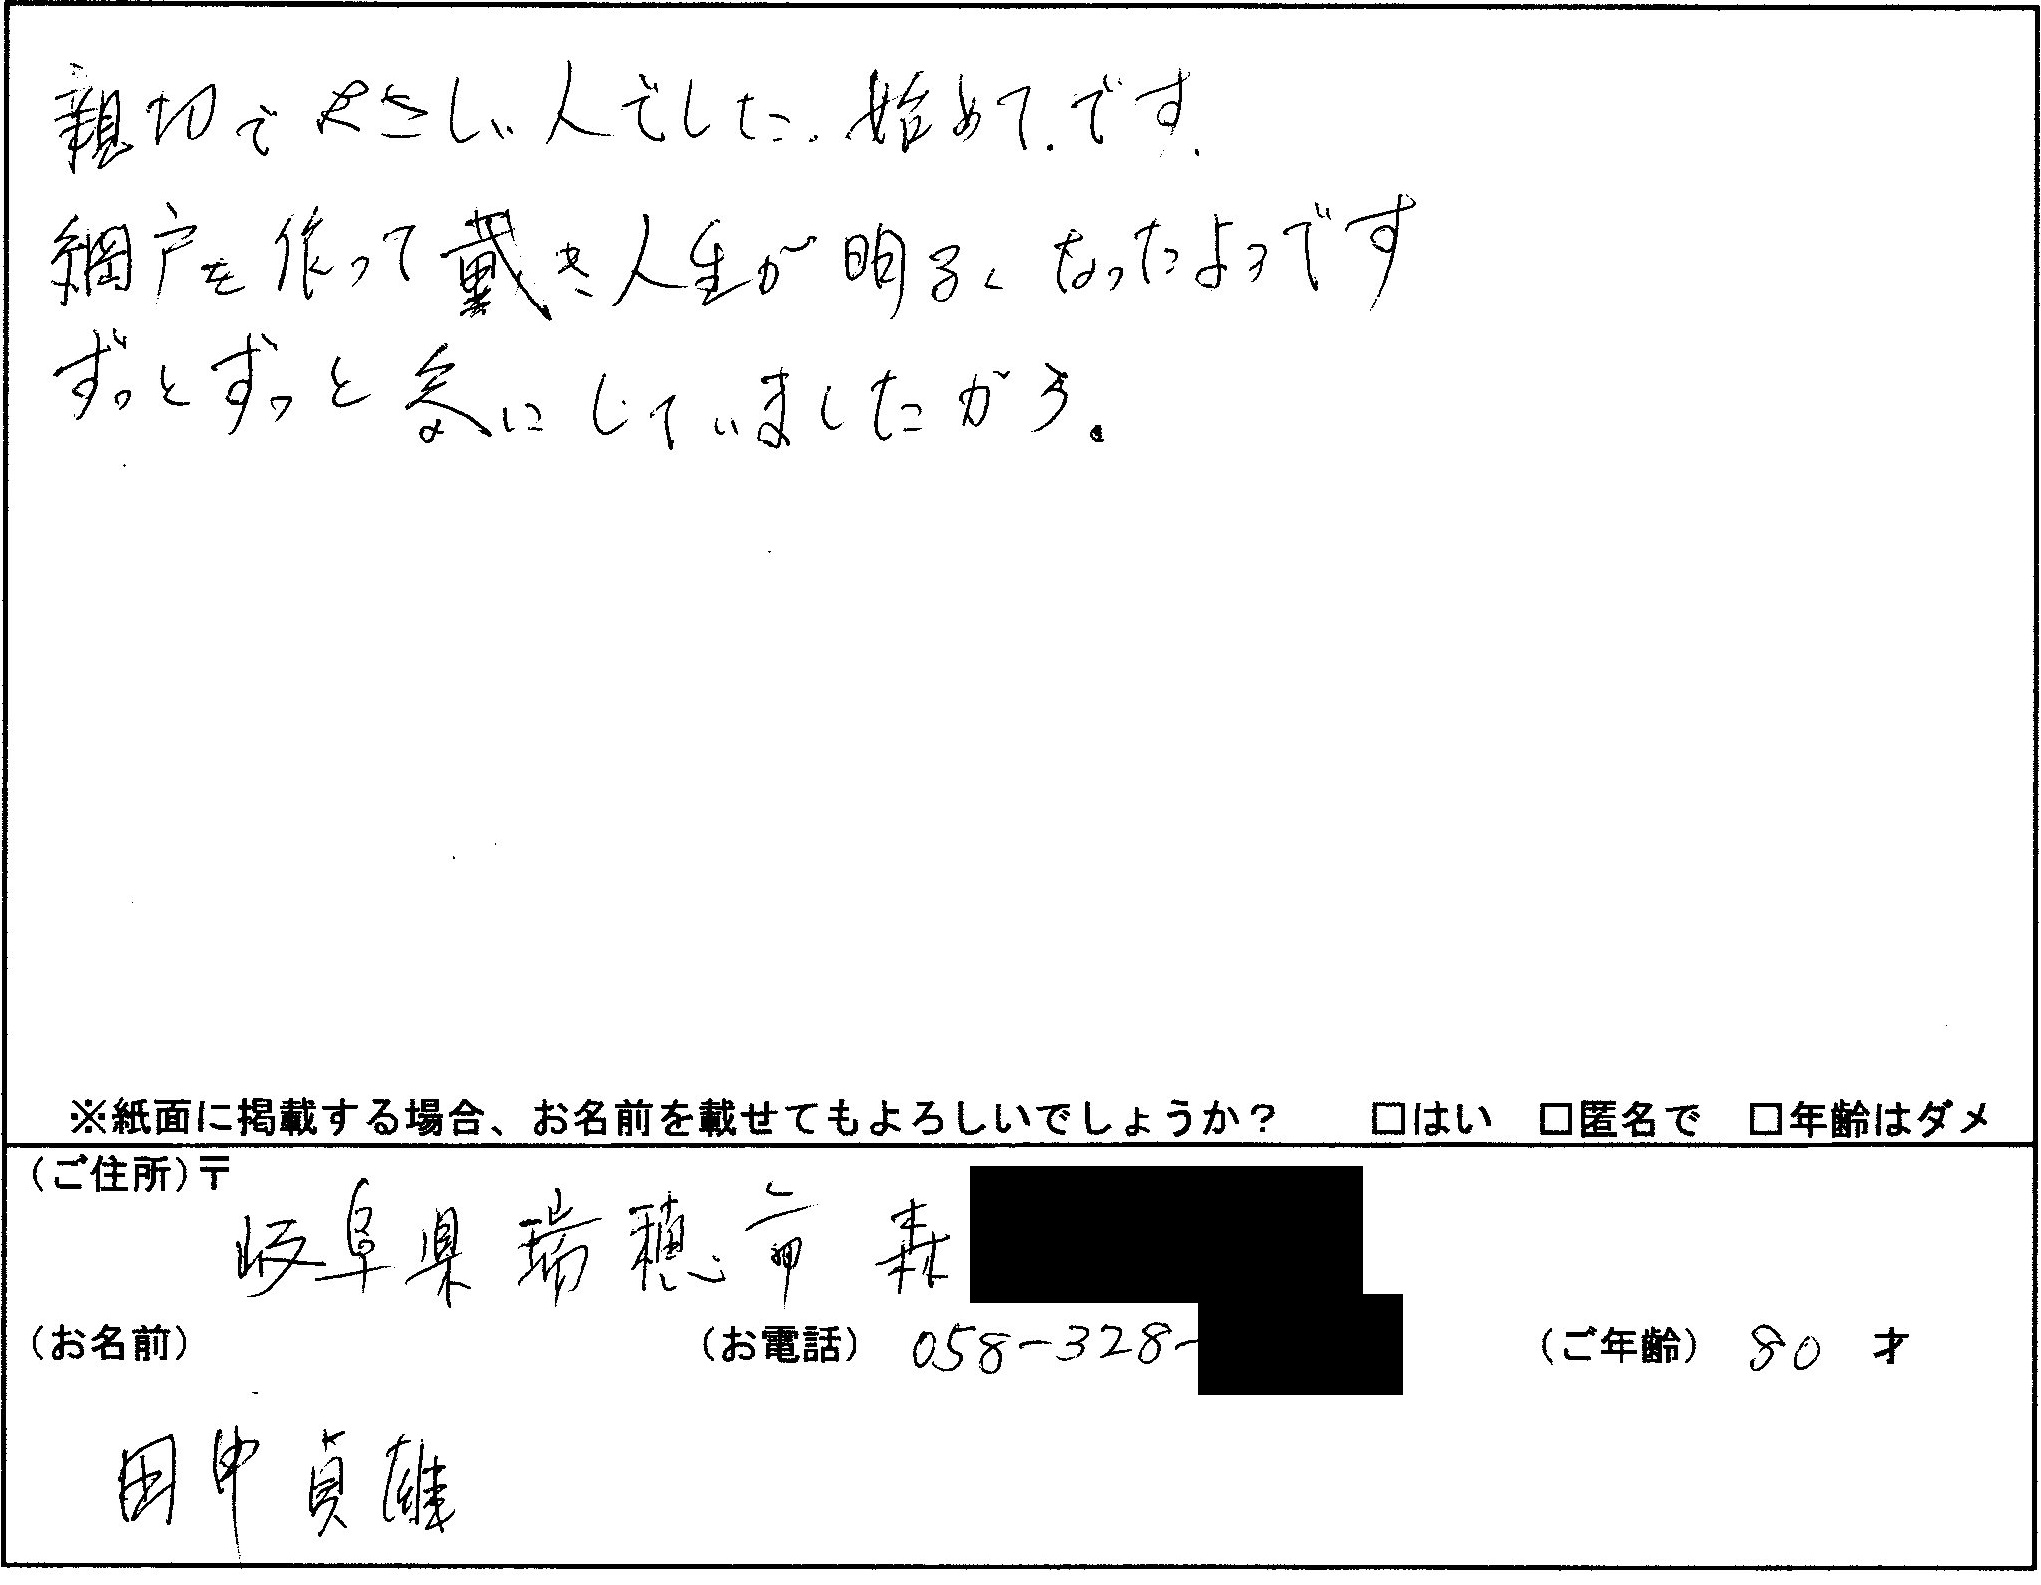 親切でやさしい人でした。始めてです。
網戸を作って戴き人生が明るくなったようです
ずっとずっと気にしていましたから。
※紙面に掲載する場合、お名前を載せてもよろしいでしょうか? □はい □匿名で □年齢はダメ
(ご住所)〒
岐阜県瑞穂市森
(お名前) (お電話) 058-328- (ご年齢) 80 才
田中貞雄